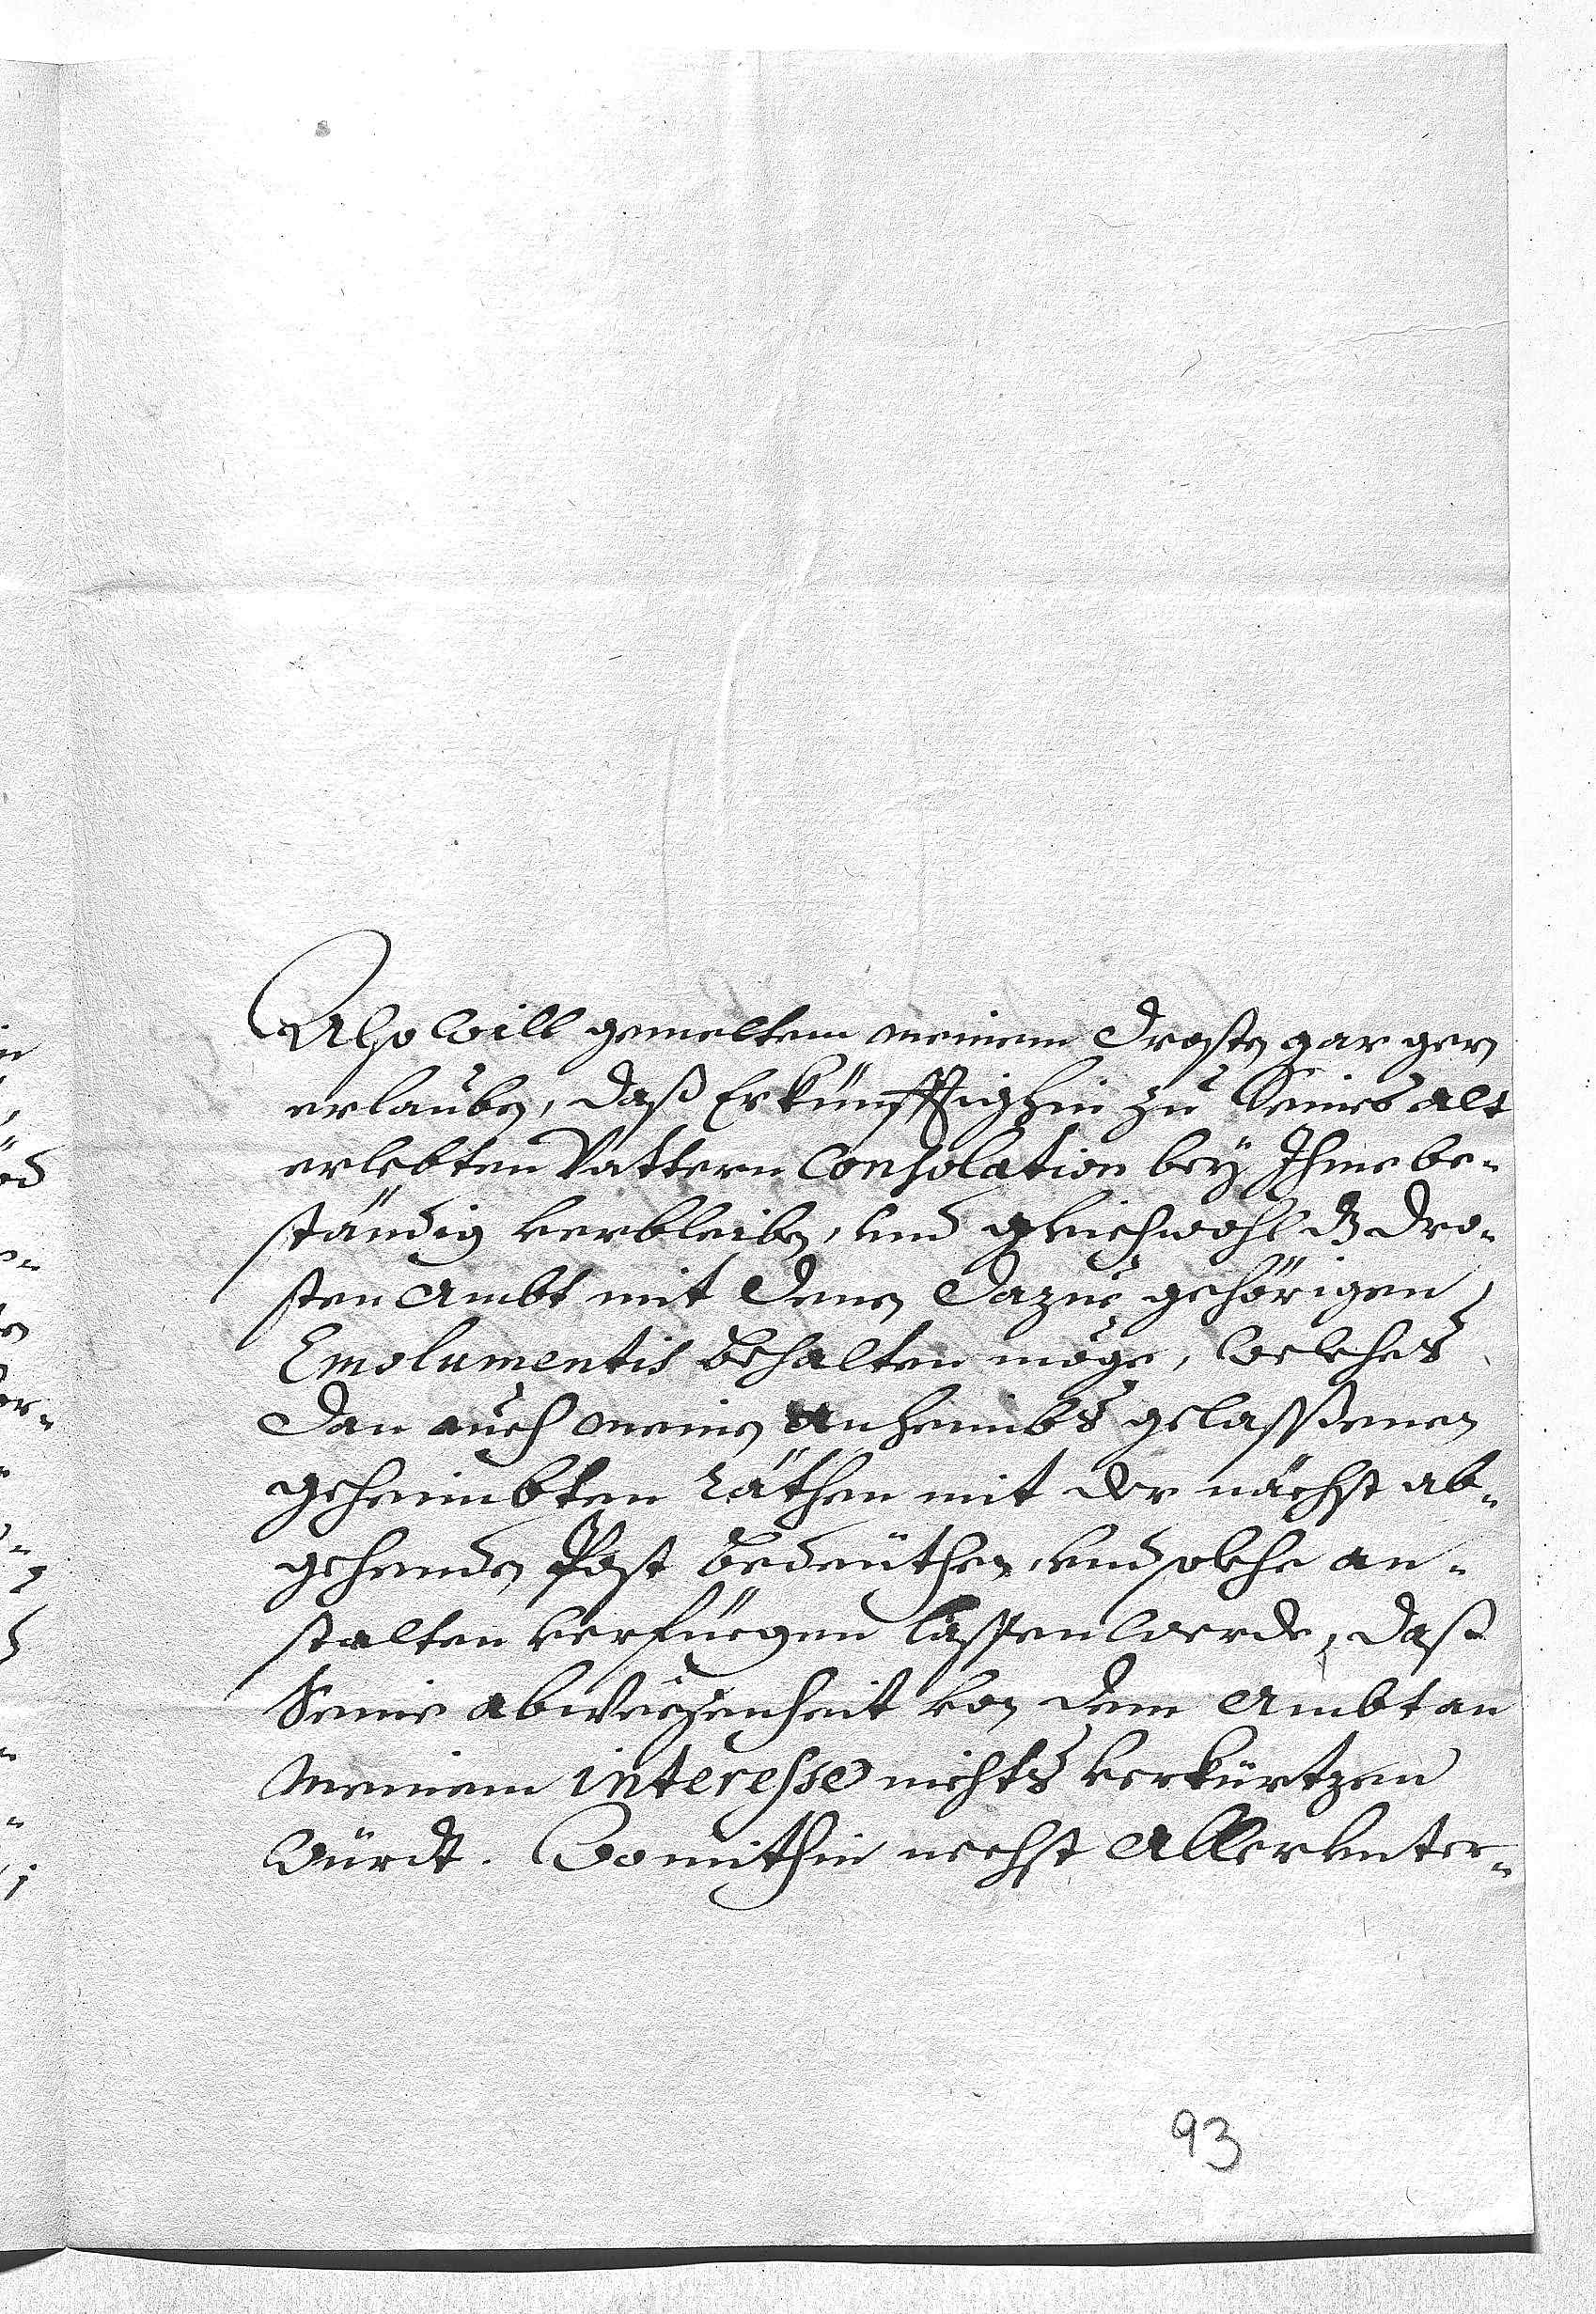 Also will gemeltem meinem Drosten gar gern
erlauben, daß Er künfftighin zu Seines alt
erlebten Vattern Consolation bey Ihme be-
ständig verbleiben, und gleichwohl dz Dro-
sten Ambt mit denen dazue gehörigen
Emolumentis behalten möge, welches
dan auch meinen anheimbs gelaßenen
geheimbten Räthen mit der nächst ab-
gehenden Post bedeuthen, und solche an-
stalten verfuegen lassen werde, daß
Seine abweßenheit von dem Ambt an
meinem interesse nichts verkürtzen
würdt. Womithin nechst Allerunter-
93